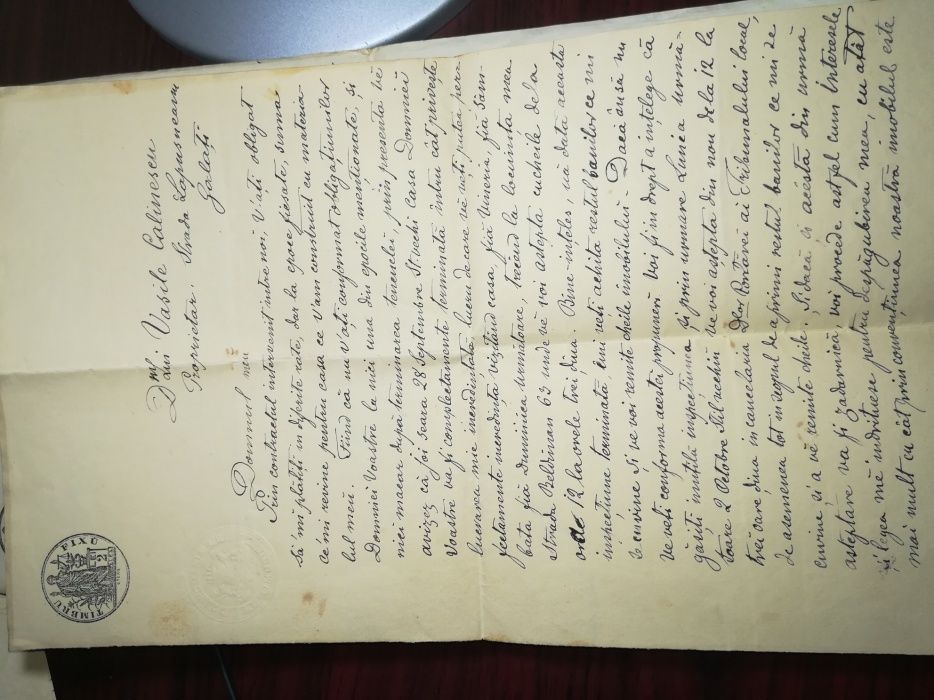 TIMBRU FIXU
2 LEI
Dlui Vasile Calinescu
Proprietar. Strada Lapusneanu
Galați
Domnul meu
Prin contractul intervenit intre noi, V'ați obligat
să'mi plătiți in diferite rate, dar la epoce ficsate, suma
ce'mi revine pentru casa ce V'am construit cu materia-
lul meŭ. Fiind că nu V'ați conformat obligațiunilor
Domniei Voastre la nici una din epocile menționate, și
nici macar după terminarea tencuelei, prin presenta vĕ
avizez că joi seara 28 Septembre St. vechi Casa Domniei
Voastre va fi complectamente terminată intru cât privesce
lucrarea mie incredintată, lucru de care vĕ veți putea per-
fectamente incredința, vizitând casa, fiă Vineria, fiă Sâm-
bata fiă Duminica urmatoare, trecênd la locuința mea
Strada Beldiman 63 unde vĕ voi aștepta cu cheile dela
orele 12 la orele trei diua. Bine-înteles, uă dată aceasta
inspecțiune terminată imi veti achita restul banilor ce mi
se cuvine si ve voi remite cheile imobilului. Dacă însă nu
ve veti conforma acestei propuneri voi fi in drept a ințelege că
gasiti inutilă inspectiunea și prin urmare Lunea urmă-
toare 2 Octobre Stil vechiu ve voi aștepta din nou de la 12 la
trei oare diua in cancelaria Dlor Portărei ai Tribunalului local,
de asemenea tot in scopul de a primi restul banilor ce mi se
cuvine si a vĕ remite cheile. Și dacă și acésta din urmă
asteptare va fi zadarnică, voi procede astfel cum interesele
și legea mĕ indrituesc pentru despăgubirea mea, cu atât
mai mult cu cât prin convențiunea noastră imobilul este